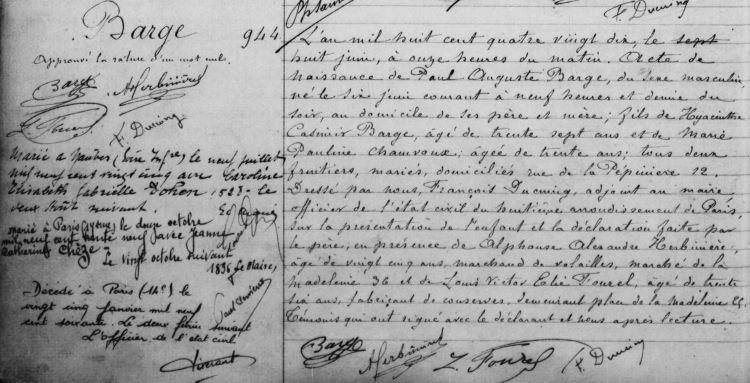 Barge
944
Approuvé la rature d'un mot nul.
Barge A Herbinière
L. Fourel
F. Ducuing
Marié à Nantes (Loire Infre) le neuf juillet
mil neuf cent vingt cinq avec Caroline
Elisabeth Gabrielle 1523 - le
deux août suivant.
Marié à Paris (9ème) le douze octobre
mil neuf cent trente neuf avec Jeanne
Catherine
Le vingt octobre suivant
1836 Le Maire,
Décédé à Paris (14e) le
vingt cinq janvier mil neuf
cent soixante. Le deux février suivant
L'Officier de l'état civil
F. Ducuing
L'an mil huit cent quatre vingt dix, le sept
huit juin, à onze heures du matin. Acte de
naissance de Paul Auguste Barge, du sexe masculin,
né le six juin courant à neuf heures et demie du
soir, au domicile de ses père et mère; fils de Hyacinthe
Casimir Barge, âgé de trente sept ans et de Marie
Pauline Chamroux, âgée de trente ans; tous deux
fruitiers, mariés, domiciliés rue de la Pépinière 12.
Dressé par nous, François Ducuing, adjoint au maire
officier de l'état civil du huitième arrondissement de Paris,
sur la présentation de l'enfant et la déclaration faite par
le père, en présence de Alphonse Alexandre Herbinière,
âgé de vingt cinq ans, marchand de volailles, marché de la
Madeleine 36 et de Louis Victor Elie Fourel, âgé de trente
six ans, fabricant de conserves, demeurant place de la Madeleine
Témoins qui ont signé avec le déclarant et nous après lecture.
Barge A Herbinière L. Fourel F. Ducuing